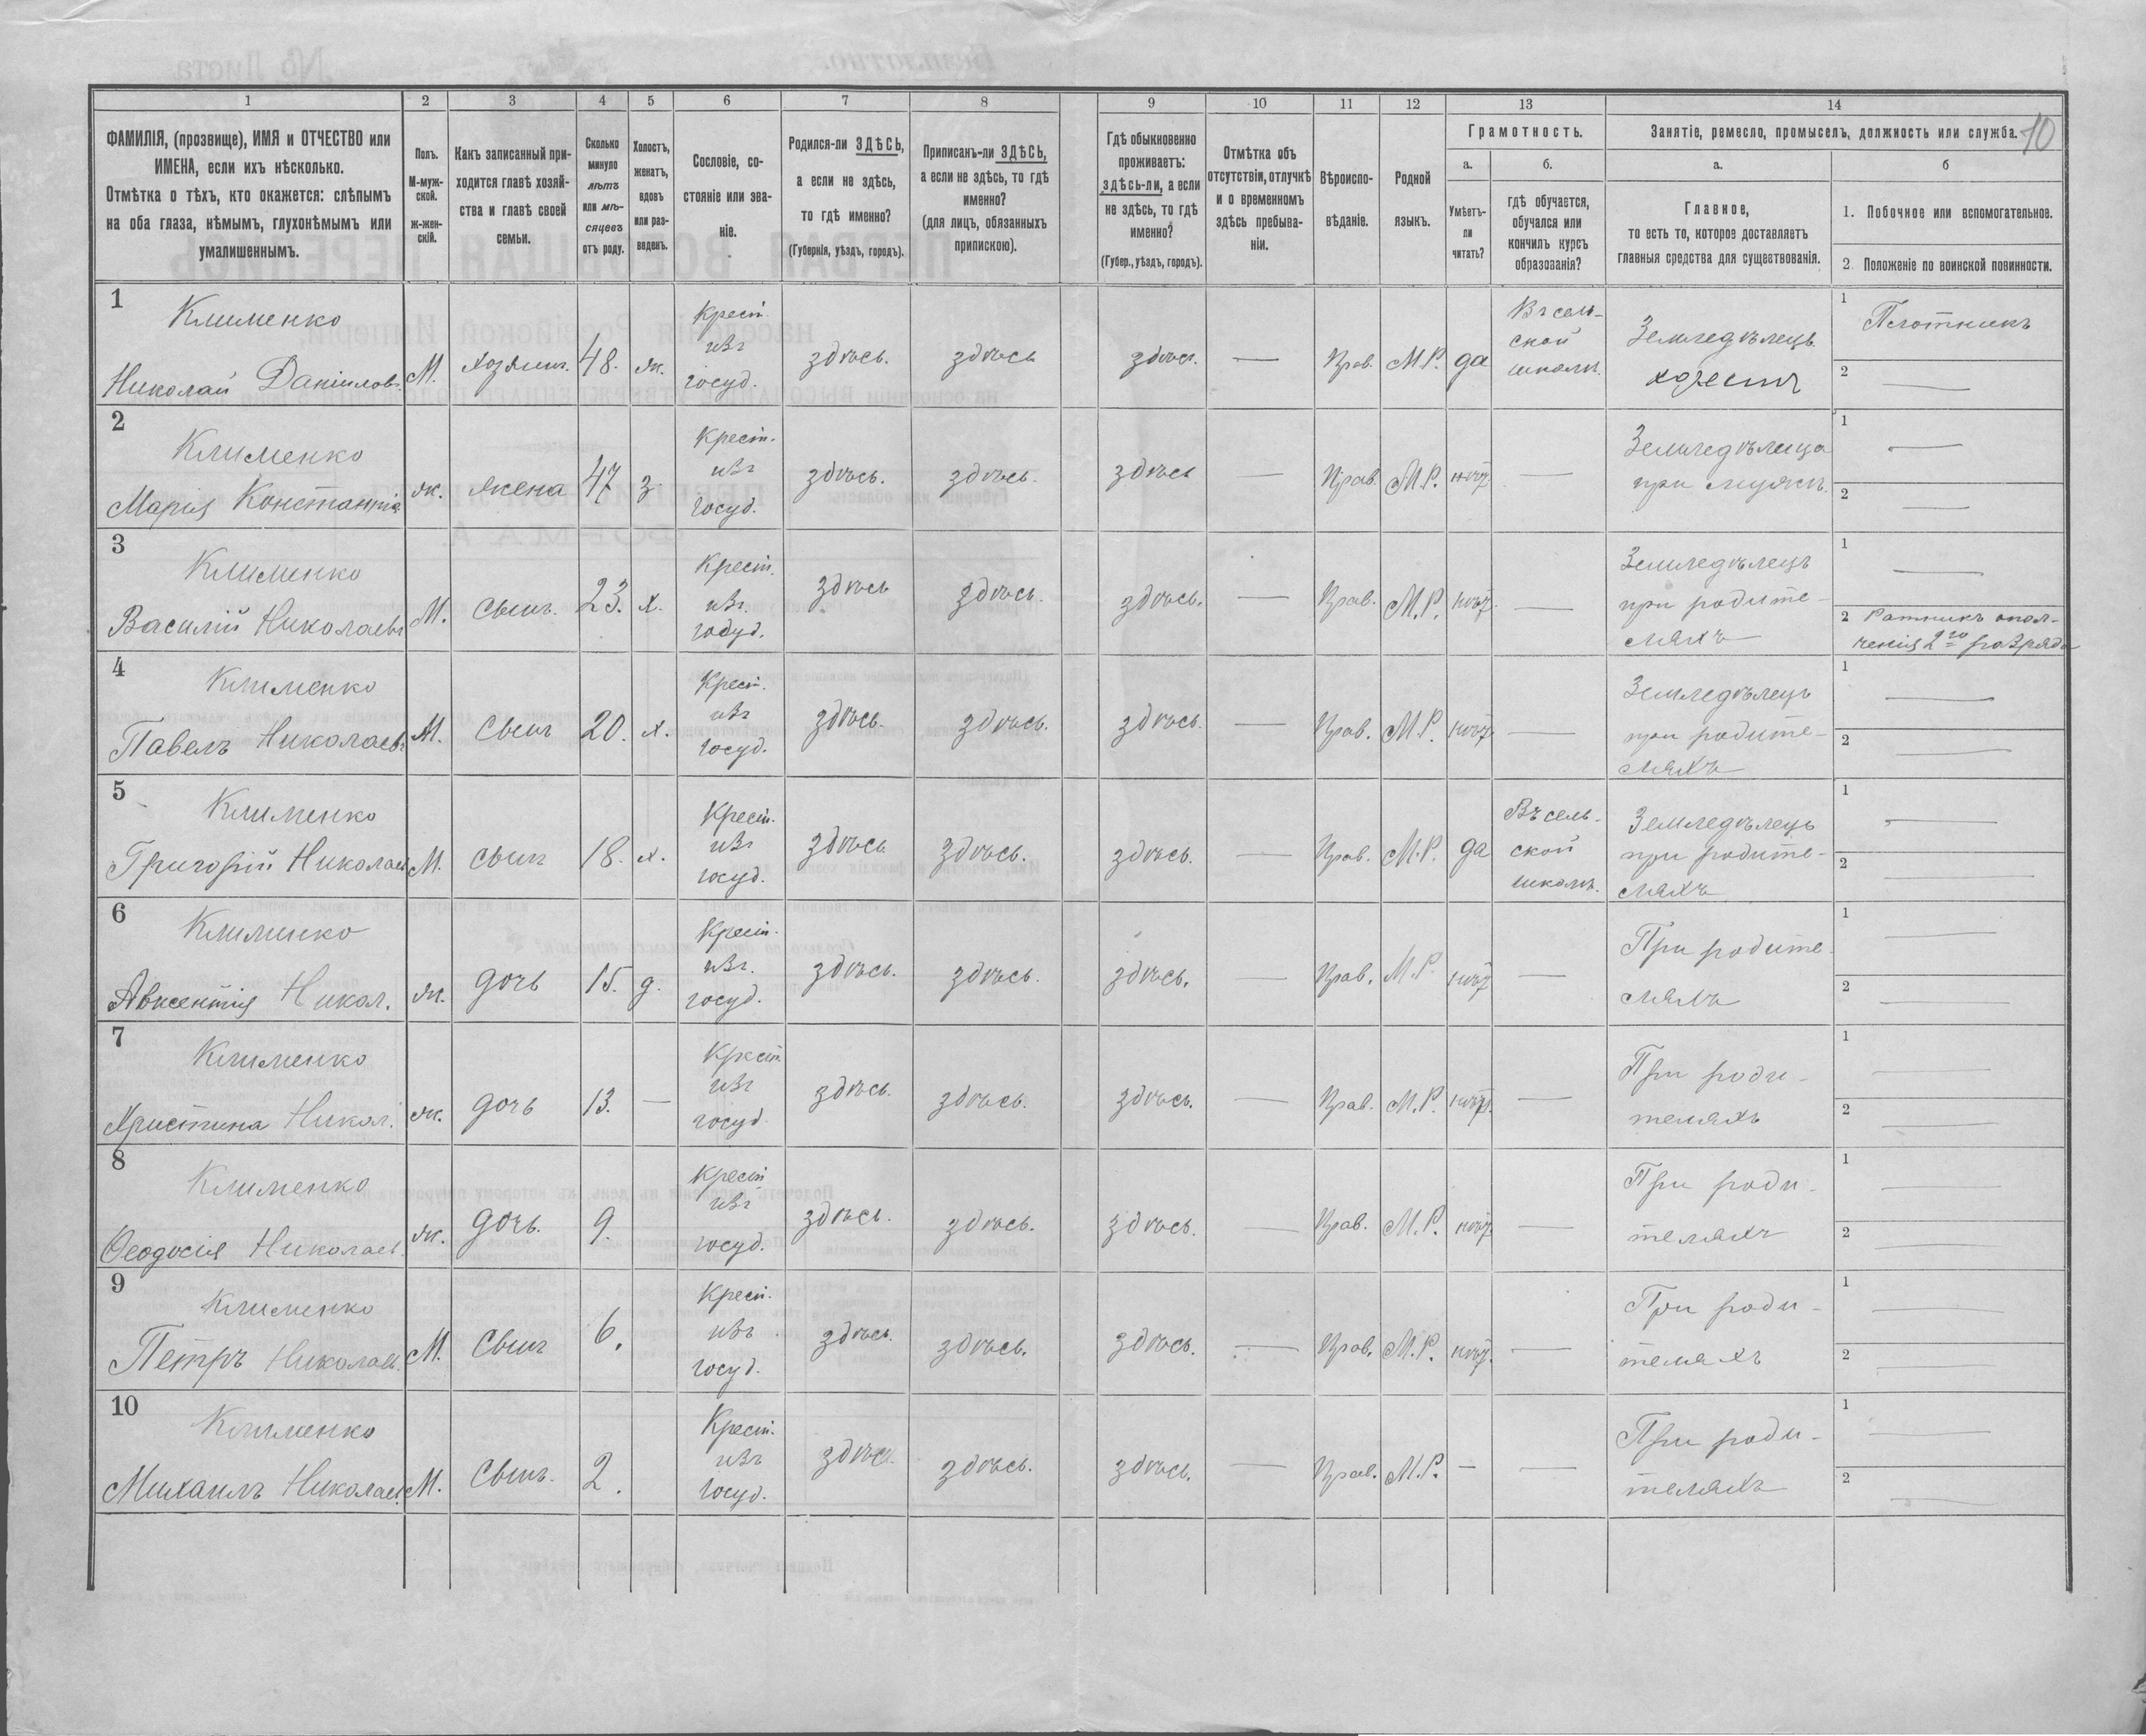 1 2 3 4 5 6 7 8 9 10 11 12 13 14
ФАМИЛІЯ, (прозвище), ИМЯ и ОТЧЕСТВО или
ИМЕНА, если ихъ нѣсколько.
Отмѣтка о тѣхъ, кто окажется: слѣпымъ
на оба глаза, нѣмымъ, глухонѣмымъ или
умалишеннымъ.
Полъ.
М-муж-
ской.
ж-жен-
скій.
Какъ записанный при-
ходится главѣ хозяй-
ства и главѣ своей
семьи.
Сколько
минуло
лѣтъ
или мѣ-
сяцевъ
отъ роду.
Холостъ,
женатъ,
вдовъ
или раз-
веденъ.
Сословіе, со-
стояніе или зва-
ніе.
Родился-ли ЗДѢСЬ,
а если не здѣсь,
то гдѣ именно?
(Губернія, уѣздъ, городъ).
Приписанъ-ли ЗДѢСЬ,
а если не здѣсь, то гдѣ
именно?
(для лицъ, обязанныхъ
припискою).
Гдѣ обыкновенно
проживаетъ:
здѣсь-ли, а если
не здѣсь, то гдѣ
именно?
(Губер., уѣздъ, городъ).
Отмѣтка объ
отсутствіи, отлучкѣ
и о временномъ
здѣсь пребыва-
ніи.
Вѣроиспо-
вѣданіе.
Родной
языкъ.
Грамотность.
а.
Умѣетъ-
ли
читать?
б.
гдѣ обучается,
обучался или
кончилъ курсъ
образованія?
Занятіе, ремесло, промыселъ, должность или служба.
10
а.
Главное,
то есть то, которое доставляетъ
главныя средства для существованія.
б
1. Побочное или вспомогательное.
2 Положеніе по воинской повинности.
1
Клименко
Николай Даніилов.
М. хозяин. 48. ж.
Крест.
изъ
госуд.
здѣсь. здѣсь здѣсь. — Прав. М.Р. да
Въ сель-
ской
школѣ.
Земледѣлецъ
хозяинъ
1 Плотникъ
2 —
2
Клименко
Марія
ж. жена 47 з.
Крест.
изъ
госуд.
здѣсь. здѣсь. здѣсь — Прав. М.Р. нѣт —
Земледѣлица
при мужѣ.
1 —
2 —
3
Клименко
Василій Николаевъ
М. сынъ. 23. х.
Крест.
изъ.
госуд.
здѣсь здѣсь. здѣсь. — Прав. М.Р. нѣт —
Земледѣлецъ
при родите-
ляхъ
1 —
2 Ратникъ опол-
ченія 2го разряда
4
Клименко
Павелъ Николаев.
М. сынъ 20. х.
Крест.
изъ
госуд.
здѣсь. здѣсь. здѣсь. — Прав. М.Р. нѣт —
Земледѣлецъ
при родите-
ляхъ
1 —
2 —
5
Клименко
Григорій Николаев
М. сынъ 18. х.
Крест.
изъ
госуд.
здѣсь здѣсь. здѣсь. — Прав. М.Р. да
Въ сель-
ской
школѣ.
Земледѣлецъ
при родите-
ляхъ
1 —
2 —
6
Клименко
Авксентія Никол.
ж. дочь 15. д.
Крест.
изъ.
госуд.
здѣсь. здѣсь. здѣсь. — Прав. М.Р. нѣт —
При родите-
ляхъ
1 —
2 —
7
Клименко
Христина Никол.
ж. дочь 13. —
Крест.
изъ
госуд.
здѣсь. здѣсь. здѣсь. — Прав. М.Р. нѣт. —
При роди-
теляхъ
1 —
2 —
8
Клименко
Ѳеодосія Николаев.
ж. дочь. 9.
Крест
изъ
госуд.
здѣсь. здѣсь. здѣсь. — Прав. М.Р. нѣт —
При роди-
теляхъ
1 —
2 —
9
Клименко
Петръ Николаев.
М. сынъ 6.
Крест.
изъ
госуд.
здѣсь. здѣсь. здѣсь. — Прав. М.Р. нѣт. —
При роди-
теляхъ
1 —
2 —
10
Клименко
Михаилъ Николаев.
М. сынъ. 2.
Крест.
изъ
госуд.
здѣсь. здѣсь. здѣсь. — Прав. М.Р. — —
При роди-
теляхъ
1 —
2 —